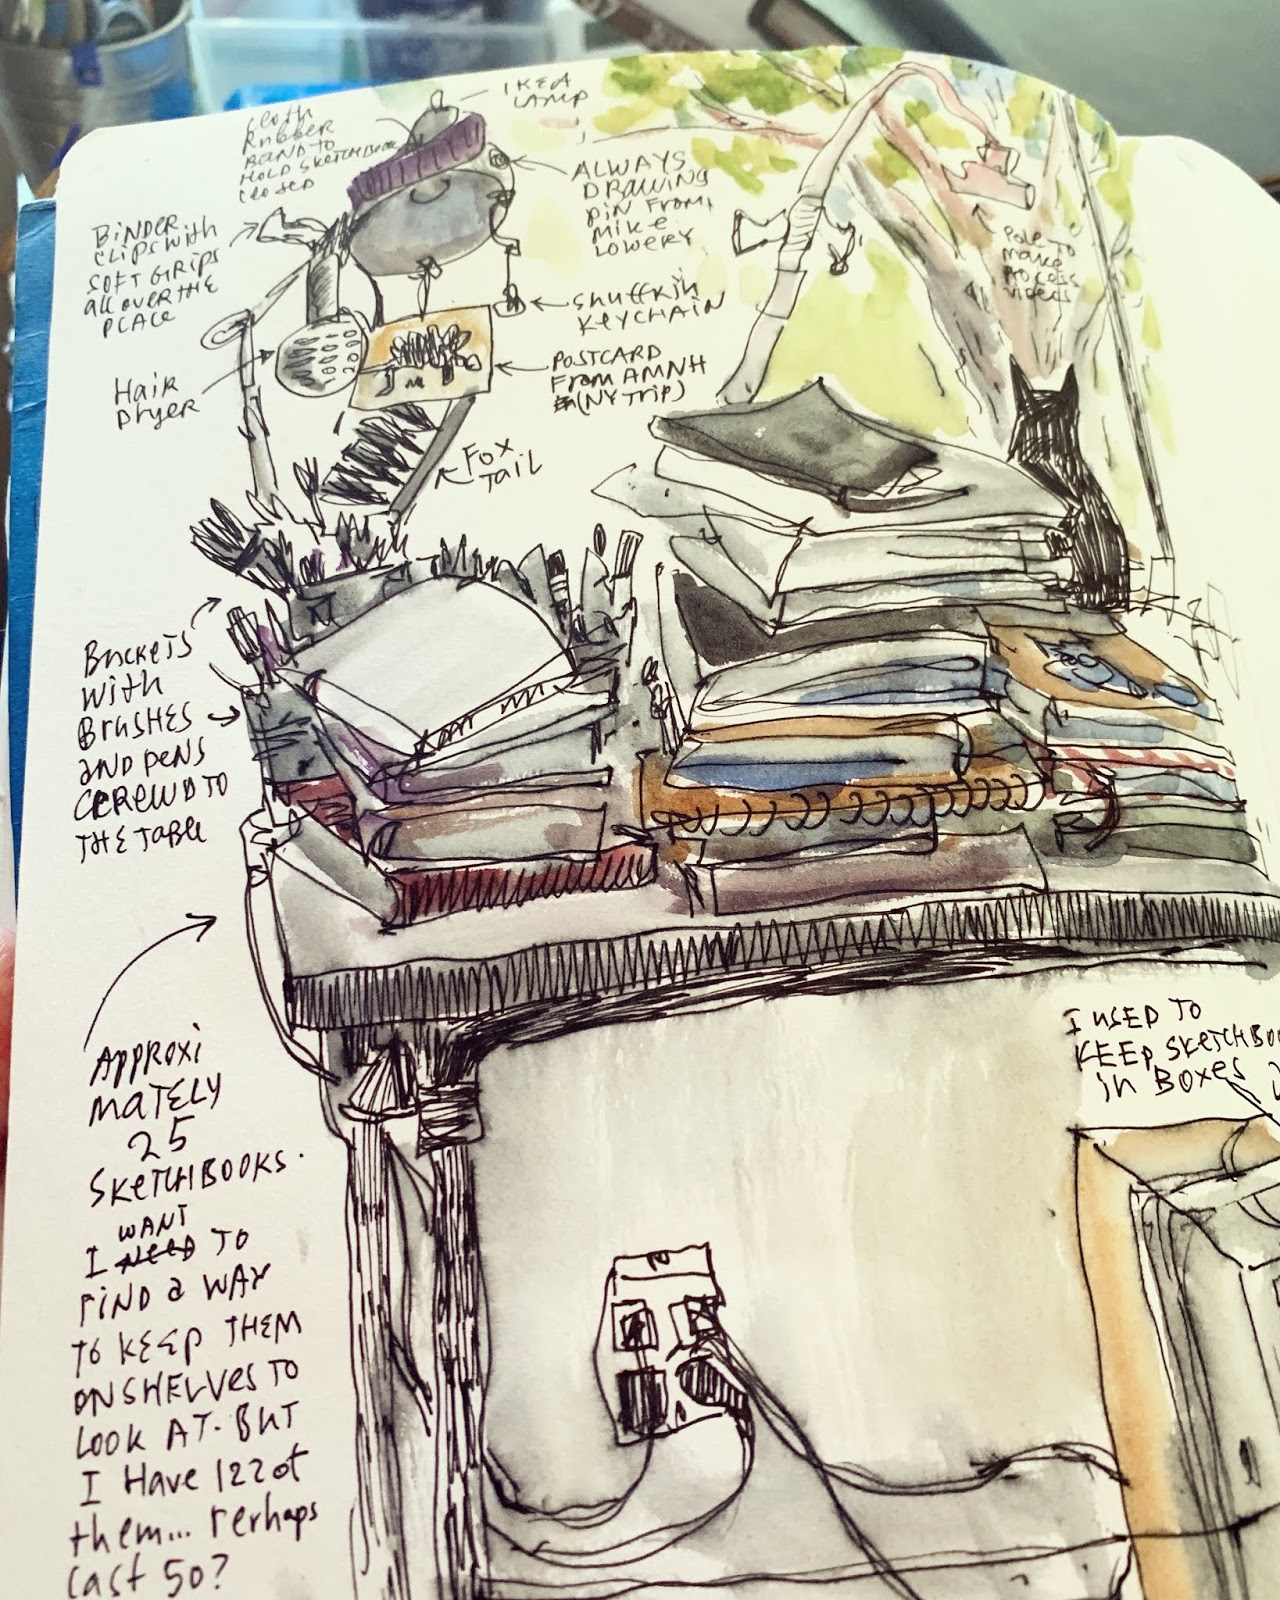 IKEA
LAMP
CLOTH
RUBBER
BAND TO
HOLD SKETCHBOOK
CLOSED
ALWAYS
DRAWING
PIN FROM
MIKE
LOWERY
BINDER
CLIPS WITH
SOFT GRIPS
all OVER THE
PLACE
POLE TO
MAKE
PROCESS
VIDEOS
KEYCHAIN
HAIR
DRYER
POSTCARD
FROM AMNH
(NY TRIP)
FOX
TAIL
BUCKETS
WITH
BRUSHES
AND PENS
CEREWD TO
THE TABLE
APPROXI
MATELY
25
SKETCHBOOKS.
WANT
I NEED TO
FIND a WAY
TO KEEP THEM
ON SHELVES TO
LOOK AT. BUT
I HAVE 122 of
them... perhaps
Last 50?
I USED TO
KEEP SKETCHBOO
in BOXES